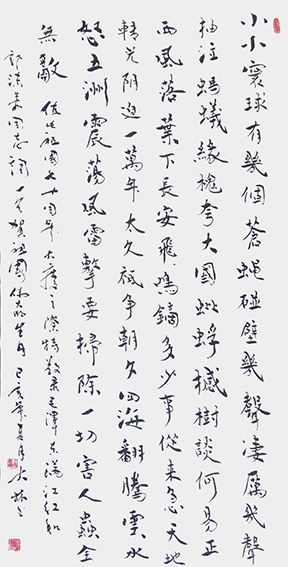 小小寰球有幾個蒼蠅碰壁幾聲淒厲幾聲
抽泣螞蟻緣槐夸大國蚍蜉撼樹談何易正
西風落葉下長安飛鳴鏑多少事從來急天地
轉光陰迫一萬年太久祇爭朝夕四海翻騰雲水
怒五洲震蕩風雷擊要掃除一切害人蟲全
無敵 值此祖國七十周年大慶之際特敬录毛澤東滿江紅和
郭沫若同志詞一首賀祖國生日己亥年夏月